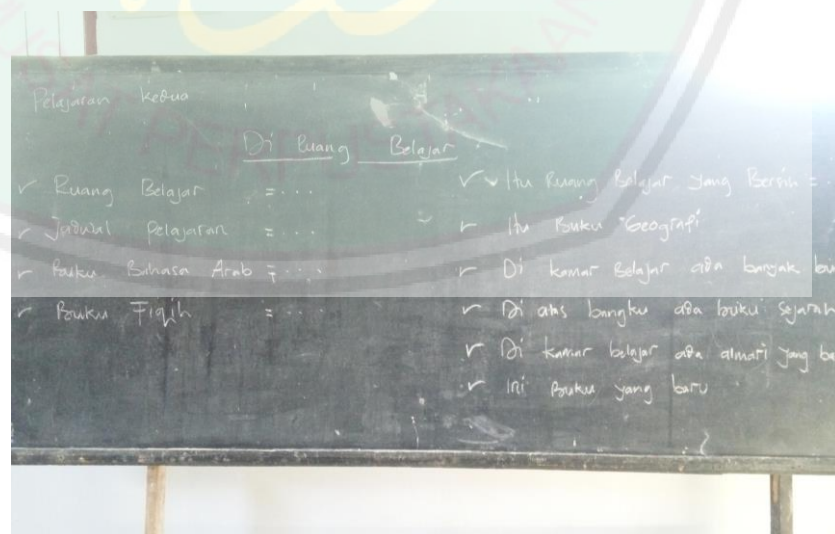 Pelajaran kedua
Di Ruang Belajar
✓ Ruang Belajar = ...
✓ Jadwal Pelajaran = ...
✓ Buku Bahasa Arab = ...
✓ Buku Fiqih = ...
✓ Itu Ruang Belajar yang Bersih =
✓ Itu Buku Geografi
✓ Di kamar Belajar ada banyak
✓ Di atas bangku ada buku sejarah
✓ Di kamar belajar ada almari yang
✓ Ini Buku yang baru